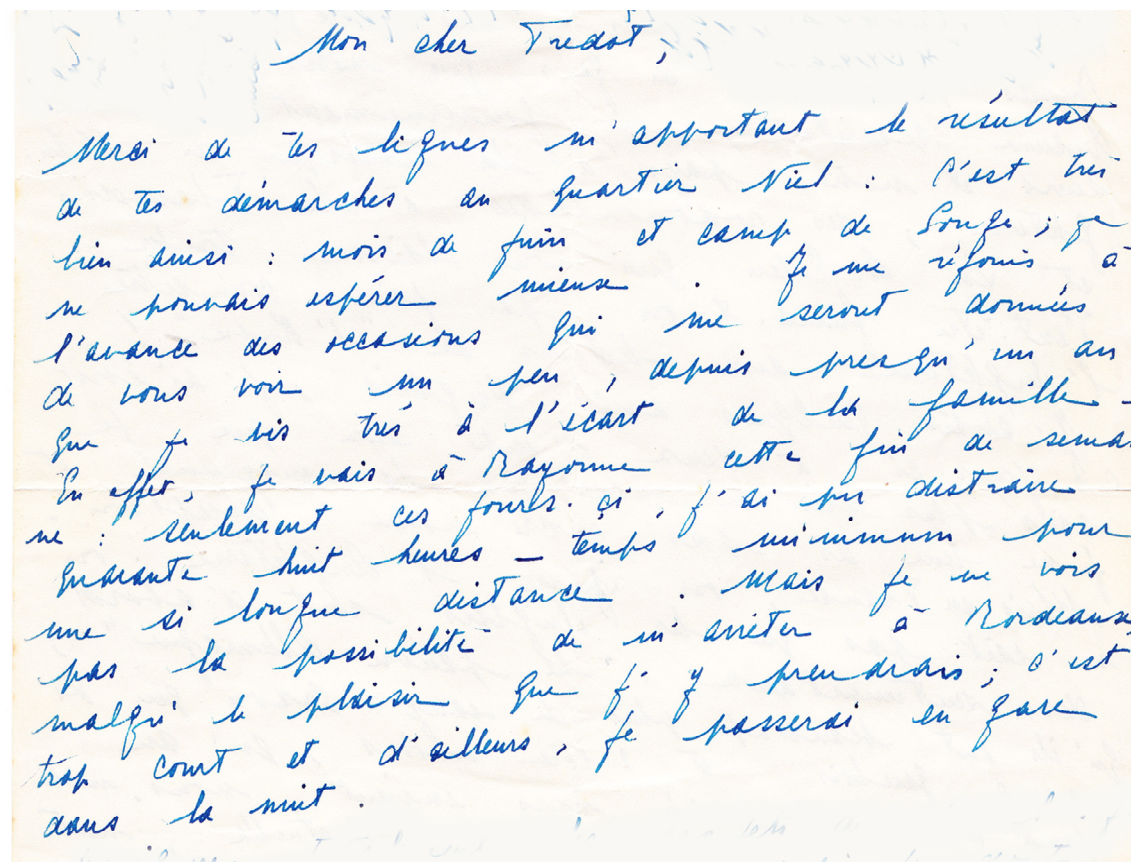 Mon cher Tredat,
Merci de tes lignes m'apportant le résultat
de tes démarches au quartier Niel : C'est très
bien ainsi : mois de juin et camp de Souge ; je
ne pouvais espérer mieux . Je me réjouis à
l'avance des occasions qui me seront données
de vous voir un peu , depuis presqu'un an
que je vis très à l'écart de la famille -
En effet, je vais à Bayonne cette fin de semai
ne : seulement ces jours-ci , j'ai pu distraire
quarante huit heures - temps minimum pour
une si longue distance . Mais je ne vois
pas la possibilité de m'arrêter à Bordeaux,
malgré le plaisir que j'y prendrais ; c'est
trop court et d'ailleurs , je passerai en gare
dans la nuit .